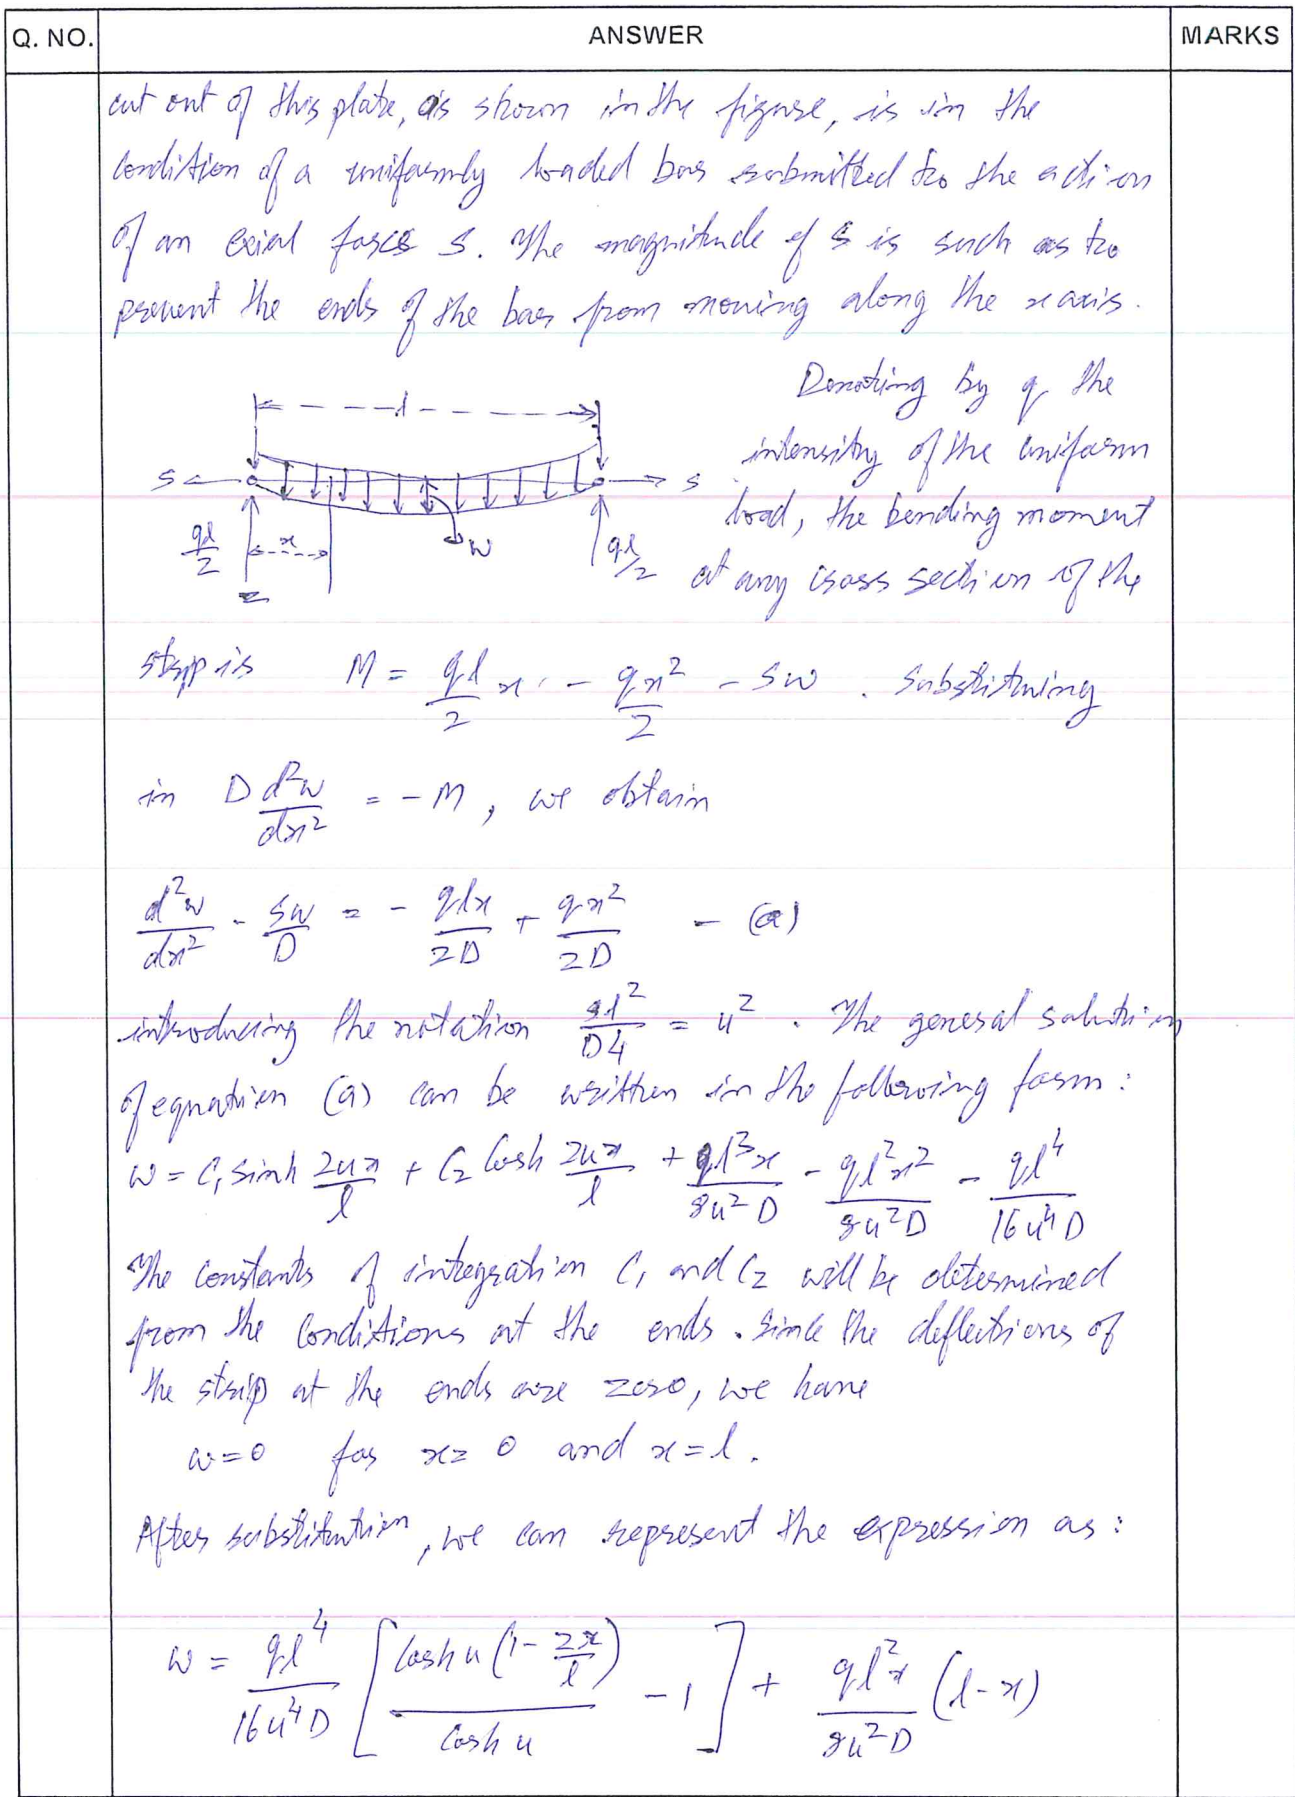 Q. NO. ANSWER MARKS
cut out of this plate, as shown in the figure, is in the
condition of a uniformly loaded bar submitted to the action
of an axial force S. The magnitude of S is such as to
prevent the ends of the bar from moving along the x axis.
Denoting by q the
l
intensity of the uniform
S S
load, the bending moment
ql/2 x w ql/2
at any cross section of the
z
strip is M = ql/2 x - qx²/2 - Sw . Substituting
in D d²w/dx² = -M, we obtain
d²w/dx² - Sw/D = - qlx/2D + qx²/2D - (a)
introducing the notation Sl²/D4 = u² . The general solution
of equation (a) can be written in the following form :
w = C₁ sinh 2ux/l + C₂ Cosh 2ux/l + ql³x/8u²D - ql²x²/8u²D - ql⁴/16u⁴D
The constants of integration C₁ and C₂ will be determined
from the conditions at the ends . Since the deflections of
the strip at the ends are zero, we have
w=0 for x= 0 and x=l .
After substitution, we can represent the expression as :
w = ql⁴/16u⁴D [Cosh u (1- 2x/l)/Cosh u - 1] + ql²x/8u²D (l-x)